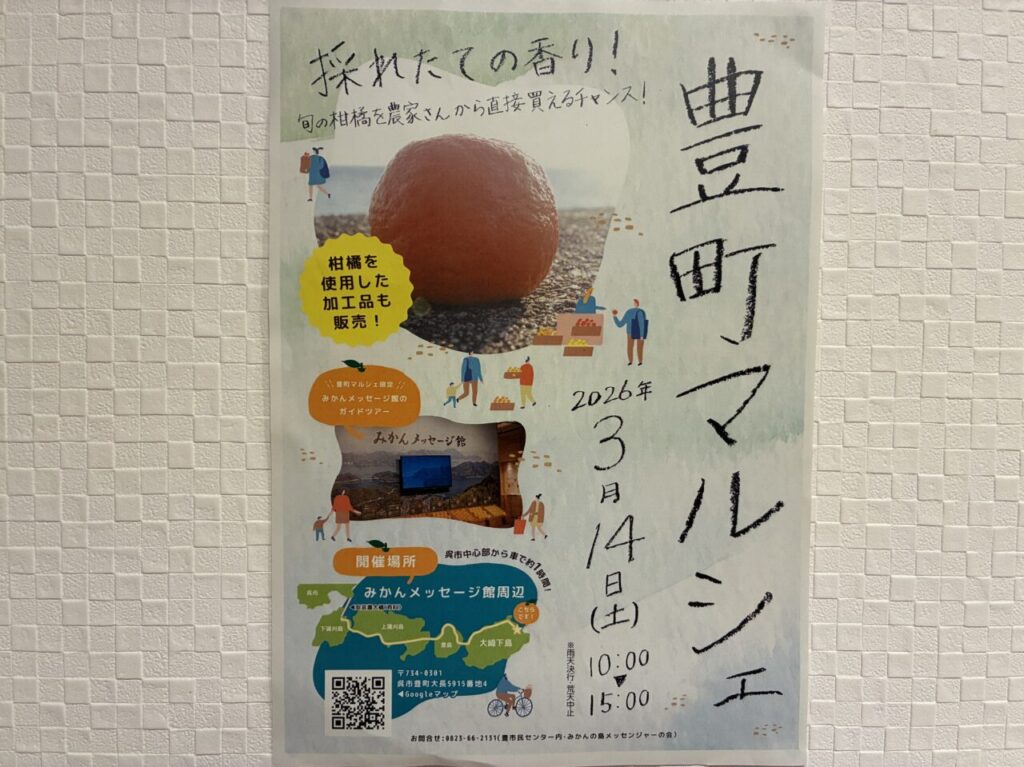 採れたての香り!
旬の柑橘を農家さんから直接買えるチャンス!
豊町マルシェ
柑橘を
使用した
加工品も
販売!
豊町マルシェ限定
みかんメッセージ館の
ガイドツアー
みかんメッセージ館
2026年
3月14日(土)
10:00
▼
15:00
※雨天決行・荒天中止
開催場所
呉市中心部から車で約1時間!
みかんメッセージ館周辺
呉市
下蒲刈島
上蒲刈島
豊島
大崎下島
こちら
です!
〒734-0301
呉市豊町大長5915番地4
◀Googleマップ
お問合せ:0823-66-2131(豊市民センター内・みかんの島メッセンジャーの会)